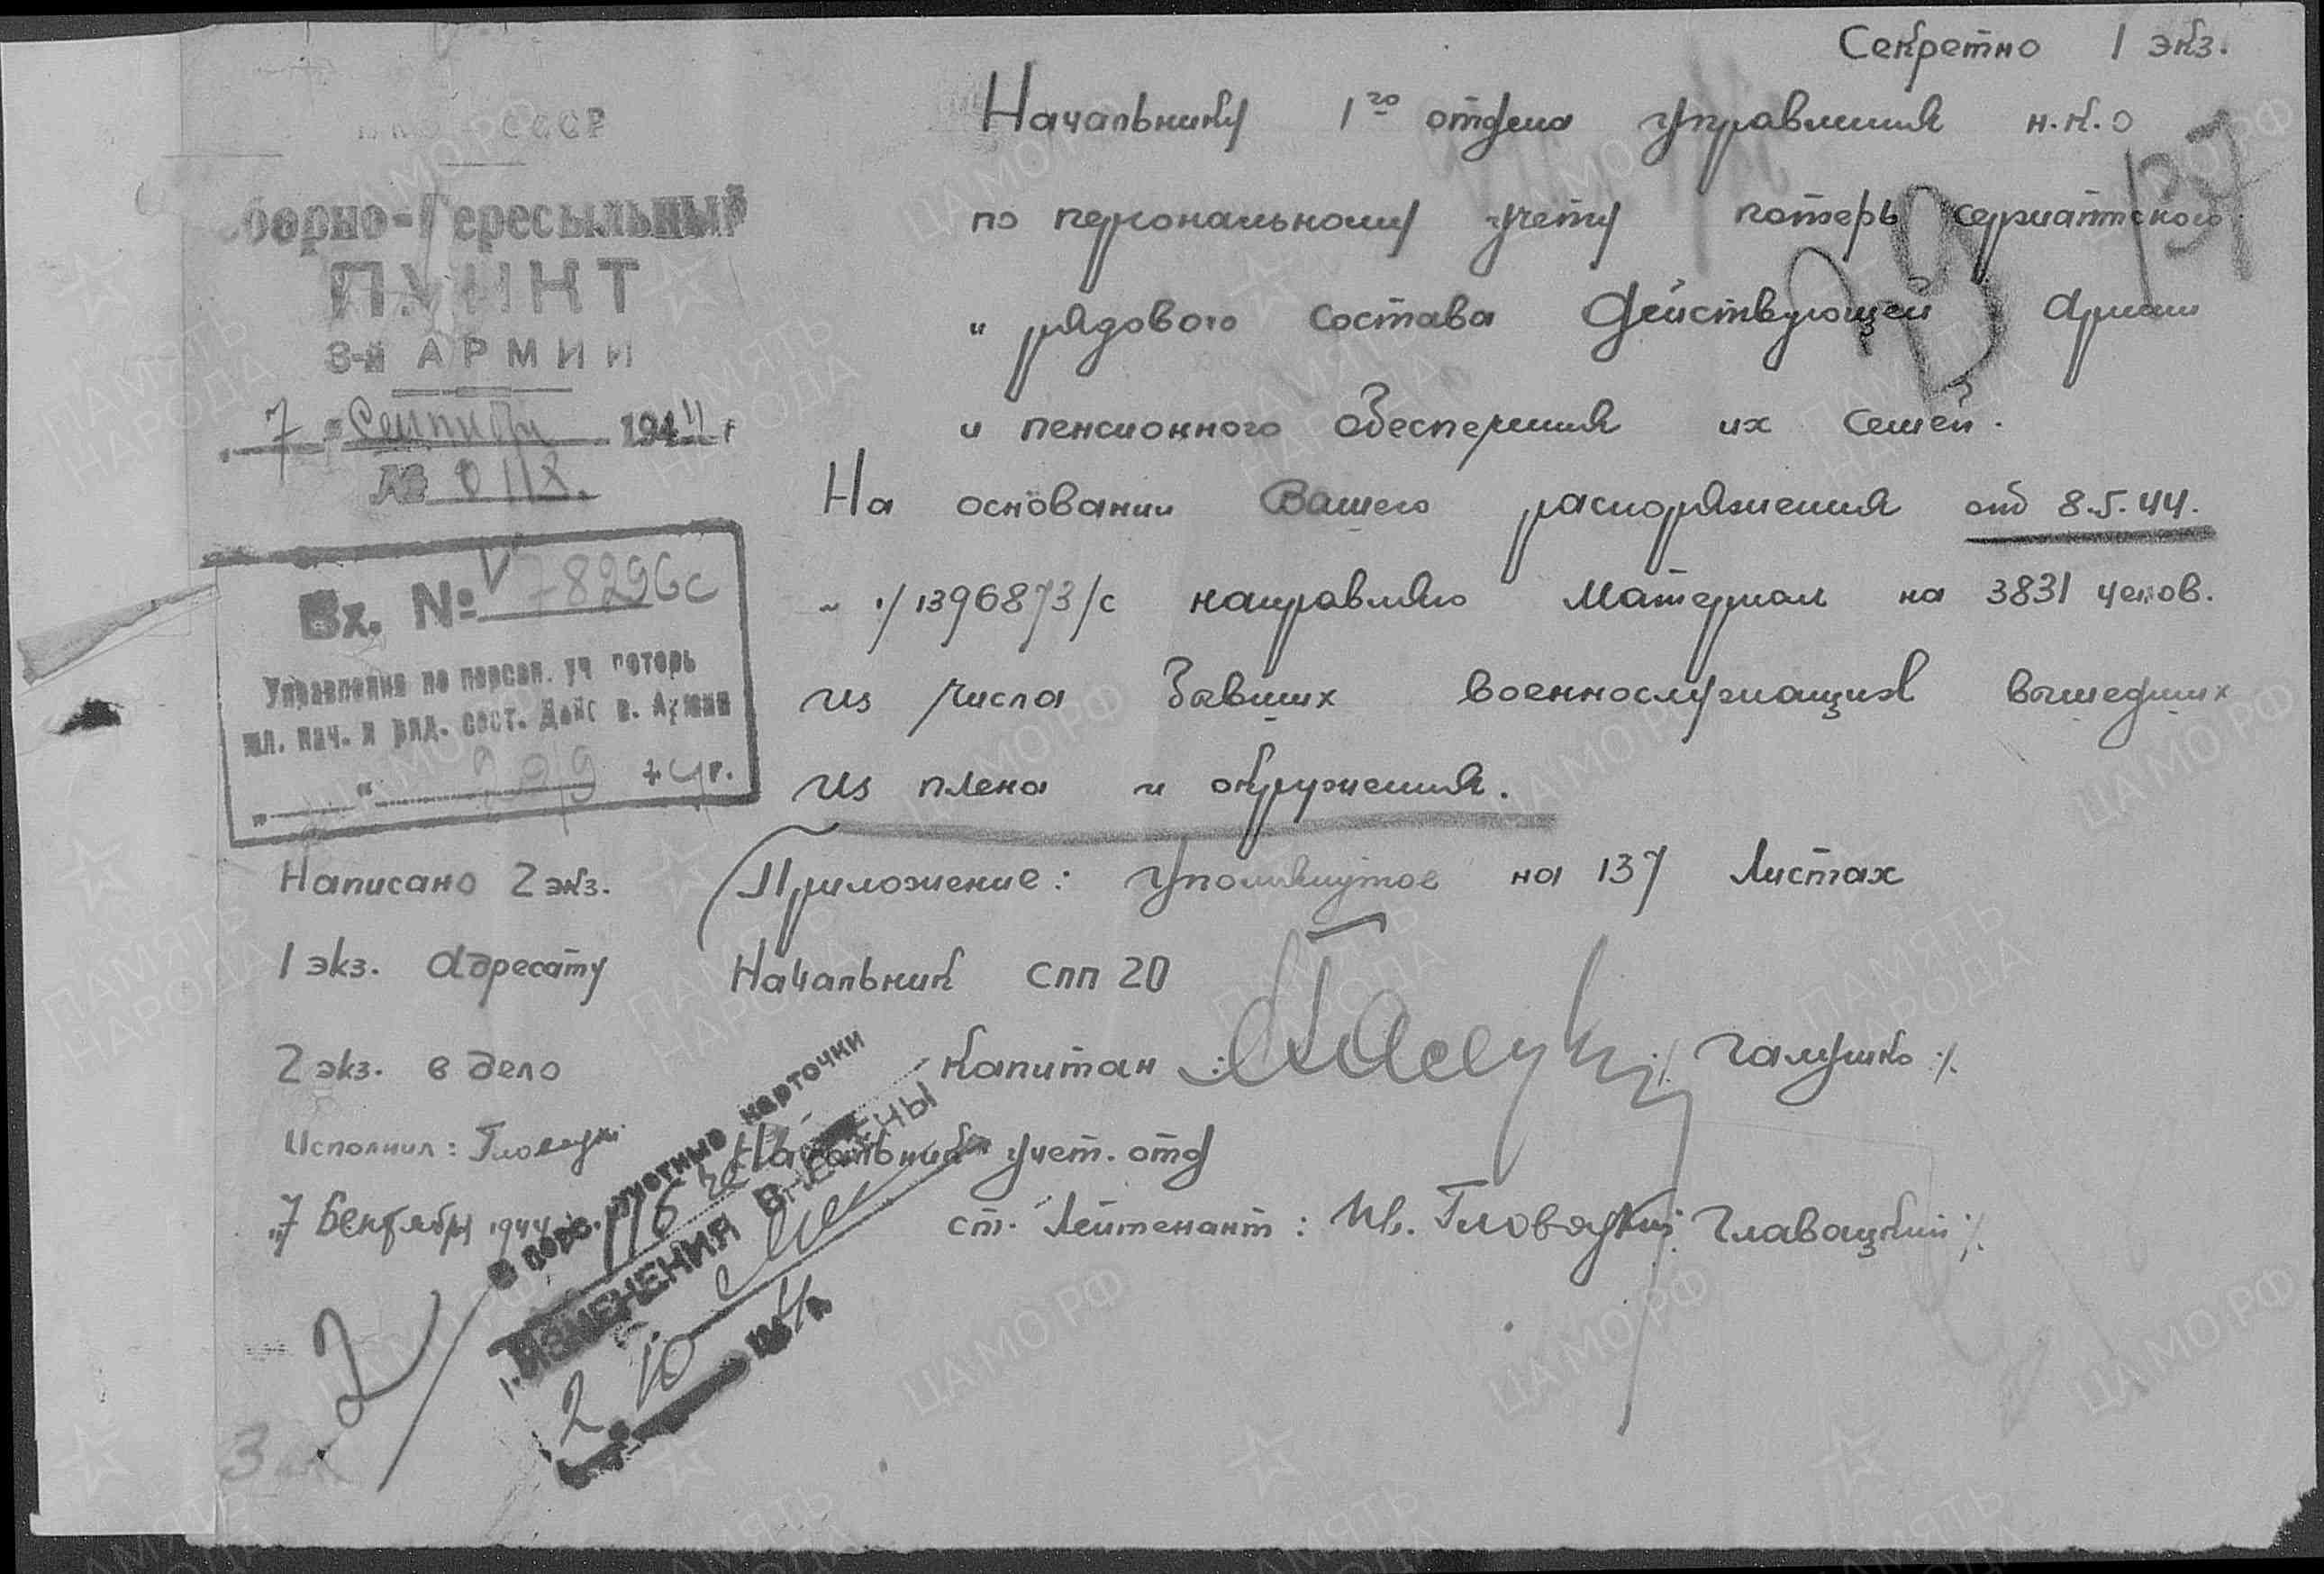 Секретно 1 экз.
СССР
Начальнику 1го отдела управления н.к.о
Сборно-Пересыльный
по персональному учету потерь сержантского
ПУНКТ
и рядового состава Действующей Армии
3-й АРМИИ
и пенсионного обеспечения их семей.
„7" Сентября 1944 г
№ 0118.
На основании Вашего распоряжения от 8.5.44.
Вх. № 78296с
№ 1/1396873/с направляю материал на 3831 челов.
Управления по персон. уч потерь
мл. нач. и ряд. сост. Дейс в. Армии
из числа бывших военнослужащих вышедших
44 г.
из плена и окружения.
137
Написано 2 экз.
Приложение: упомянутое на 137 листах
1 экз. адресату
Начальник СПП 20
2 экз. в дело
Капитан :/ Галушко ./.
Исполнил: Гловацкий
Начальник учет. отд
„7 Сентября 1944
ст. Лейтенант: Главацкий ./.
В перс. учетные карточки
116 че
ИЗМЕНЕНИЯ ВНЕСЕНЫ
2 10 1944 г.
2
3
ЦАМО РФ
ПАМЯТЬ НАРОДА